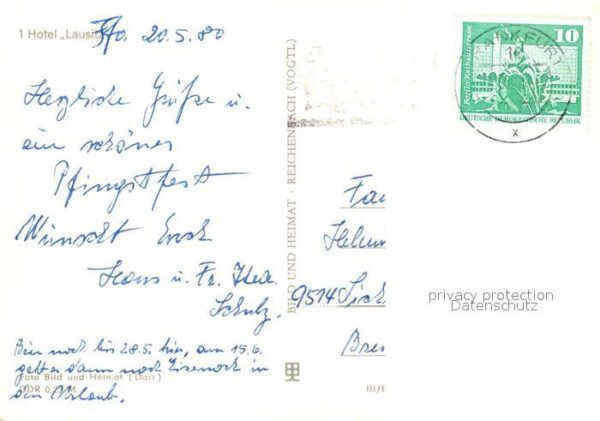 1 Hotel „Lausitz
Ffo. 20.5.80
Herzliche Grüße u.
ein schönes
Pfingstfest
Wünscht Euch
Hans u. Fr. Hea
Schulz.
Bin noch bis 28.5. hier, am 15.6.
geht es dann nach Eisenach in
den Urlaub.
Foto Bild und Heimat (Darr)
DDR 0,
BILD UND HEIMAT · REICHENBACH (VOGTL)
III/1
FRANKFURT
x
Berlin-Rathausstraße
10
DEUTSCHE DEMOKRATISCHE REPUBLIK
Fa
Helm
9514
Bre
privacy protection
Datenschutz